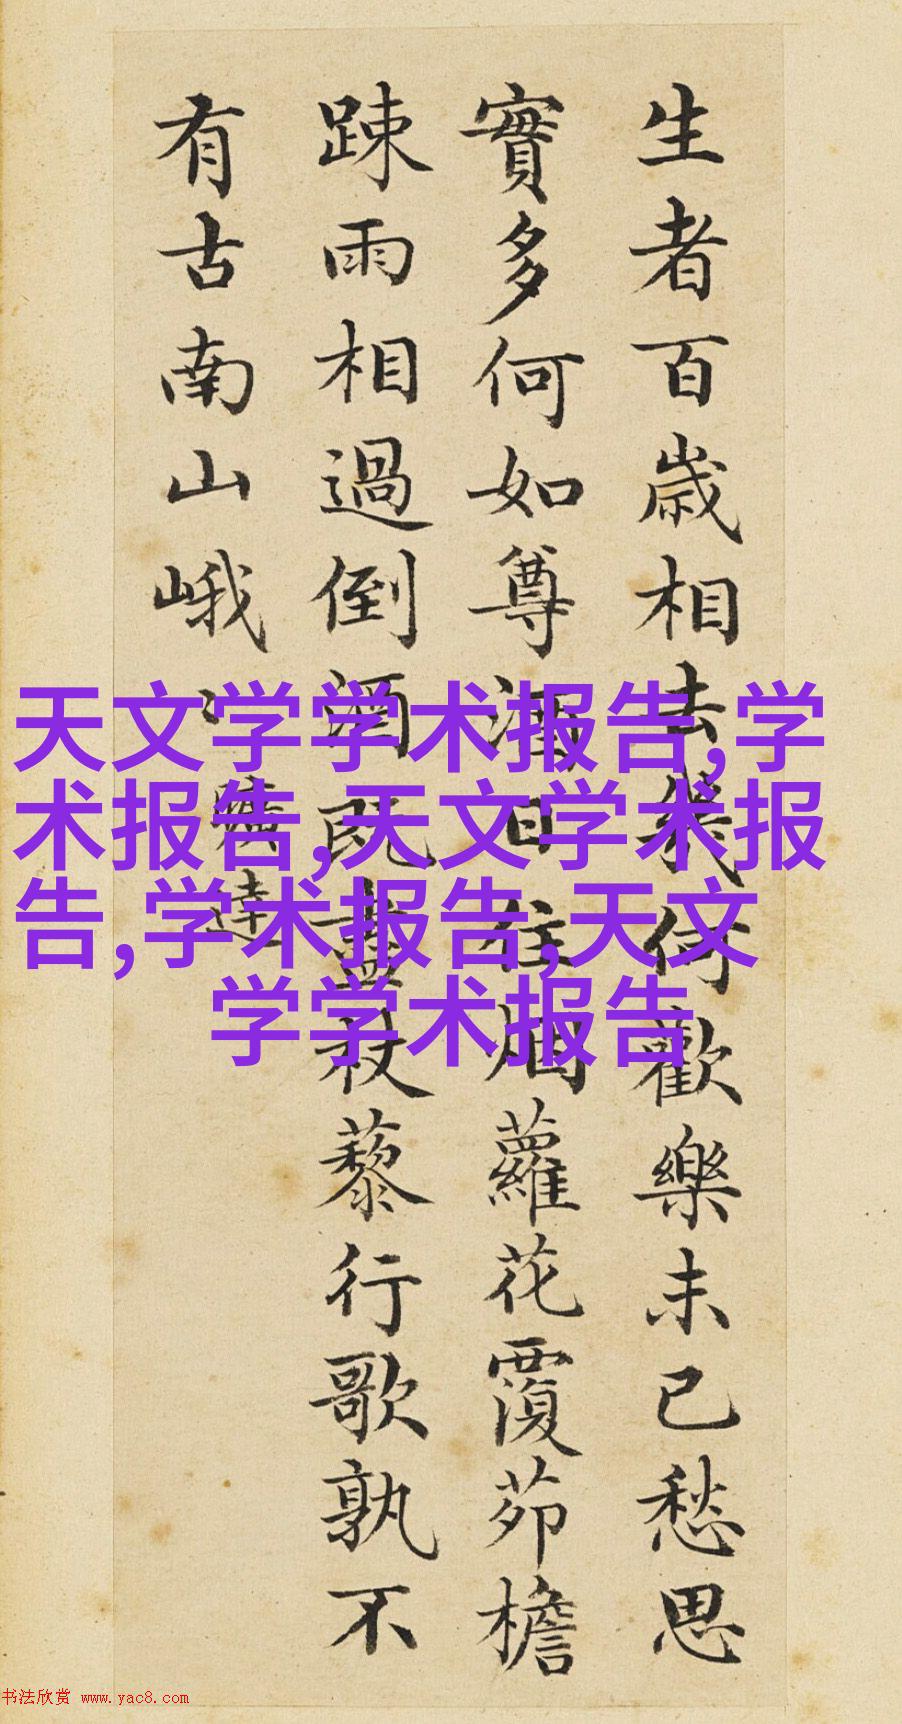 生者百歳相去幾何歡樂未已愁思
實多何如尊酒日往烟蘿花覆茆檐
踈雨相過倒酒既盡杖藜行歌孰不
有古南山峨〻
曠達
天文学学术报告,学
术报告,天文学术报
告,学术报告,天文
学学术报告
书法欣赏 www.yac8.com